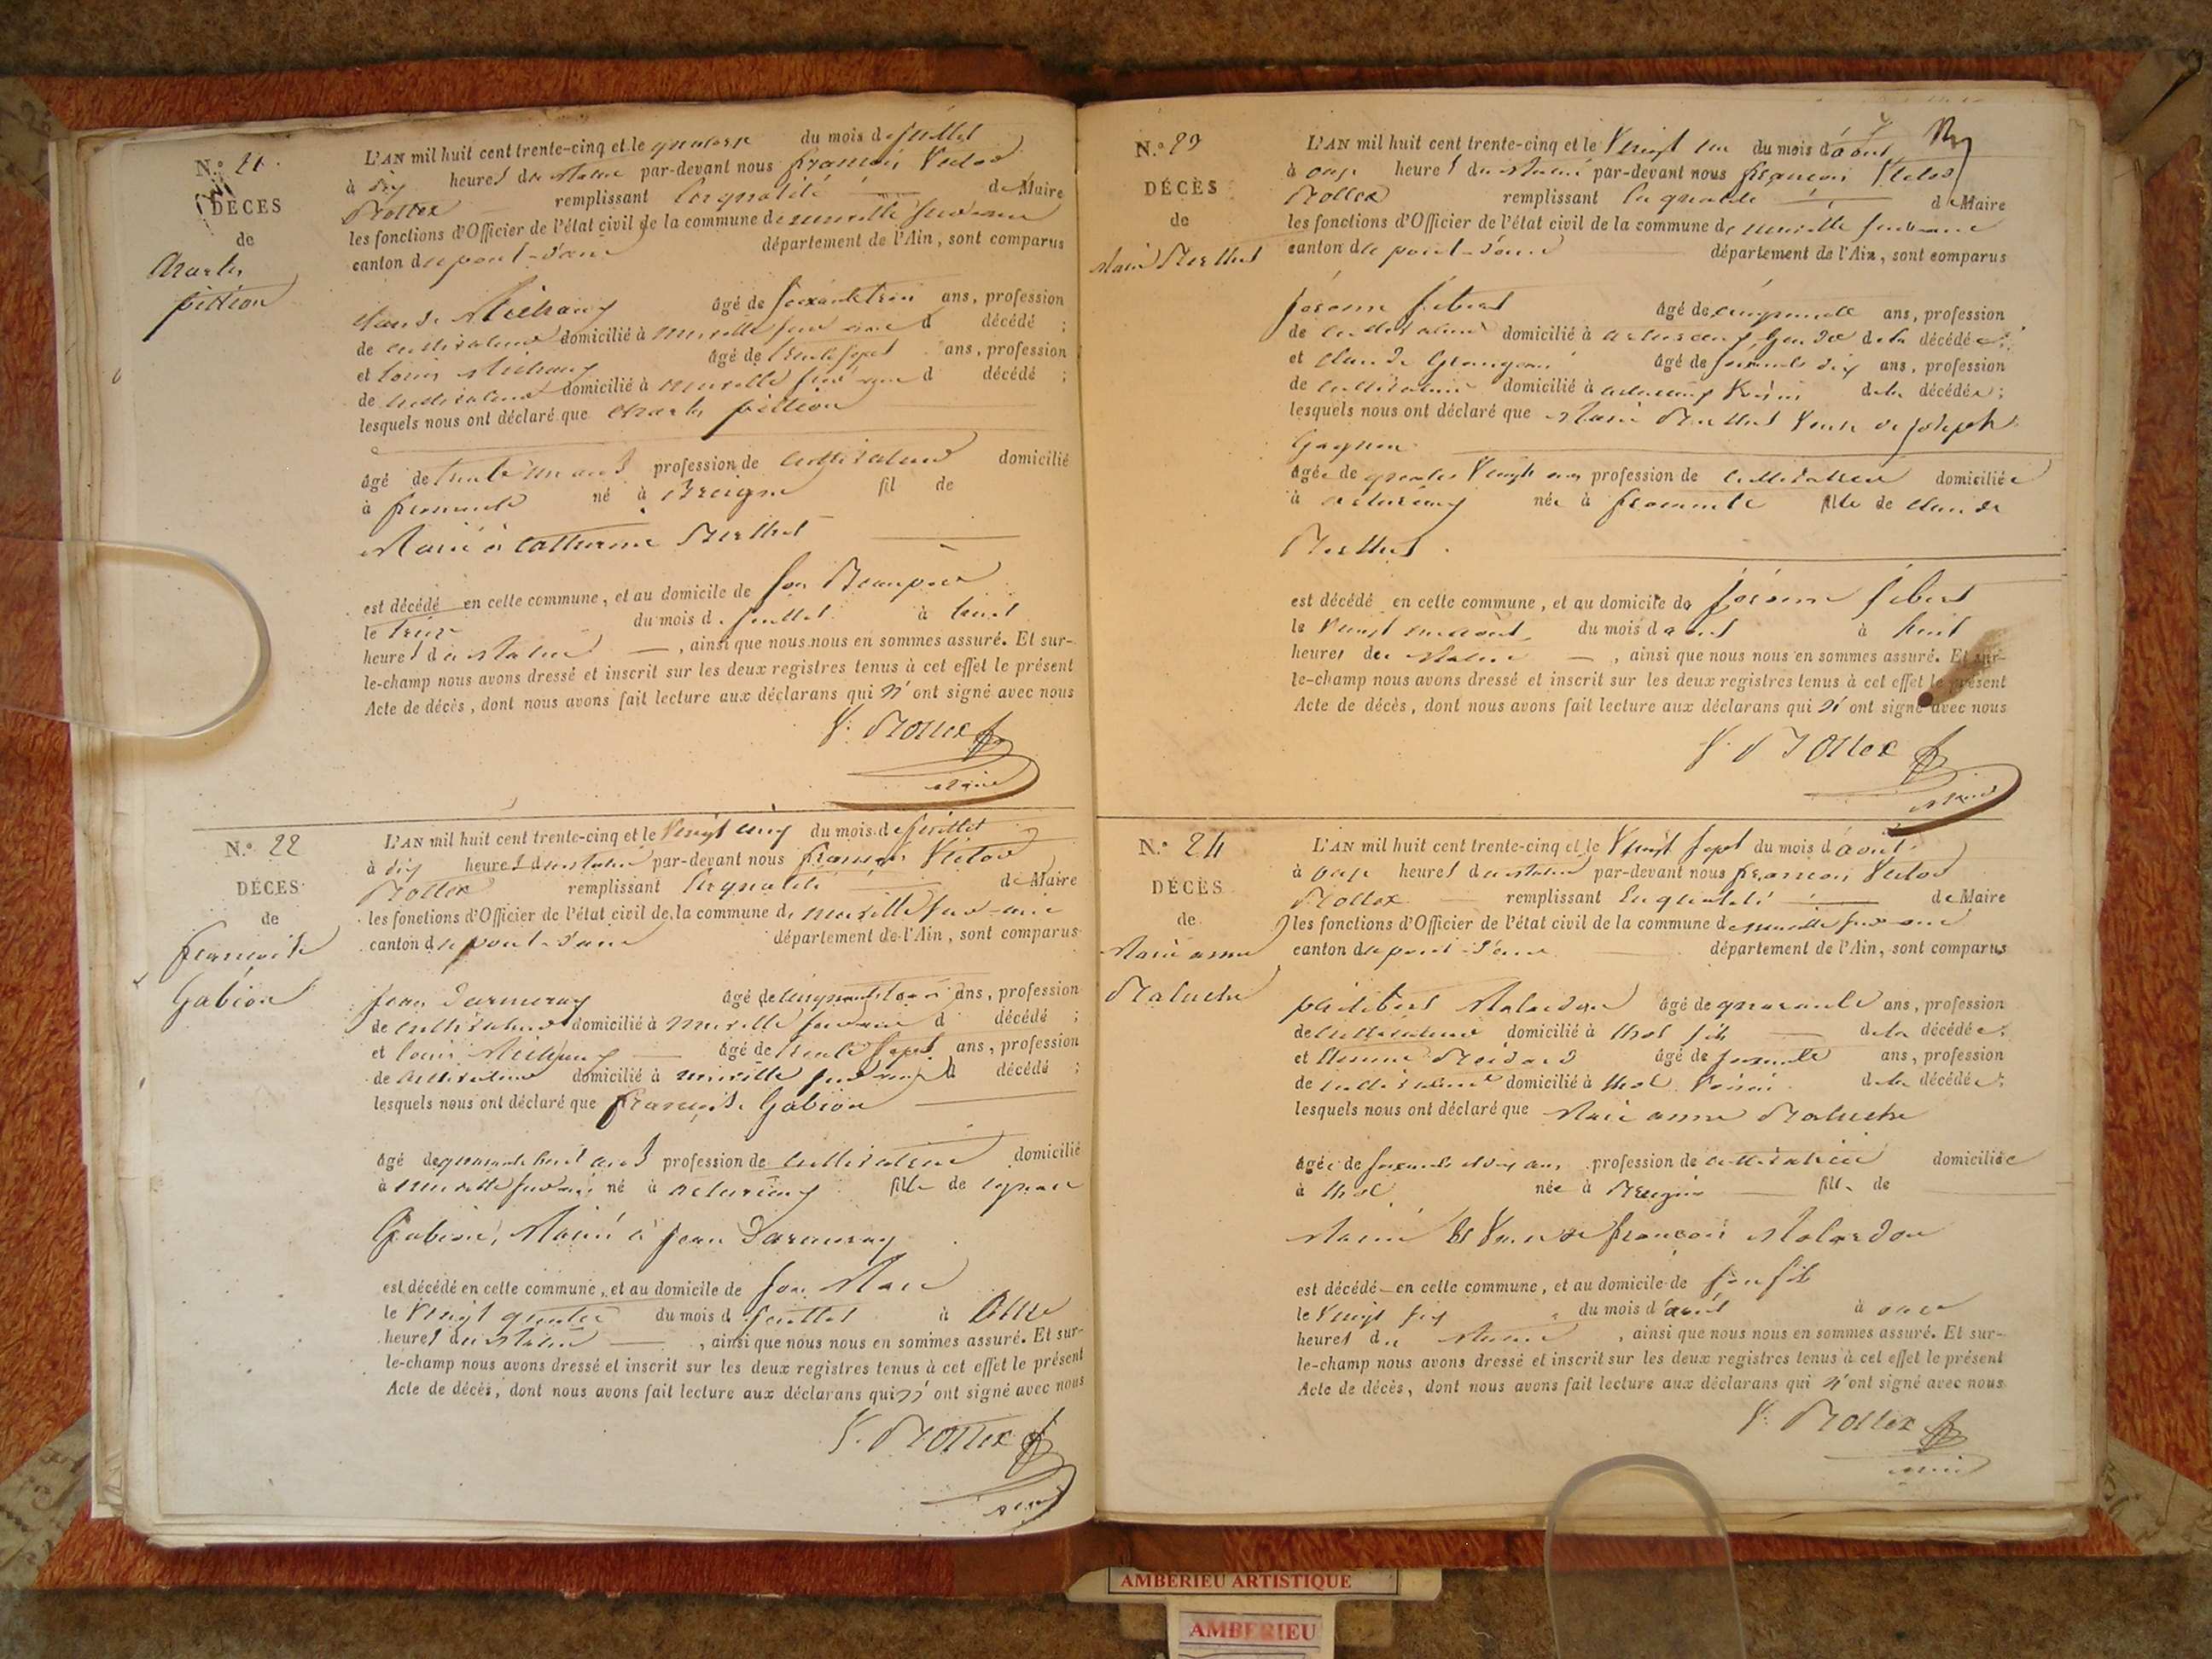 N.° 21.
DÉCES
de
Charles
pittion
L'AN mil huit cent trente-cinq et le quatorze du mois de juillet
à dix heures du matin par-devant nous françois Victor
Bottex remplissant en qualité de Maire
les fonctions d'Officier de l'état civil de la commune de neuville sur ain
canton de pont-d'ain département de l'Ain, sont comparus
claude Michaux âgé de soixante trois ans, profession
de cultivateur domicilié à neuville sur ain d décédé ;
et louis Michaux âgé de trente sept ans, profession
de cultivateur domicilié à neuville sur ain d décédé ;
lesquels nous ont déclaré que Charles pittion
âgé de trente un ans profession de cultivateur domicilié
à fromente né à fil de
Marié à Catherine Berthet
est décédé en cette commune, et au domicile de son Beaupère
le treize du mois de juillet à huit
heures du Matin, ainsi que nous nous en sommes assuré. Et sur-
le-champ nous avons dressé et inscrit sur les deux registres tenus à cet effet le présent
Acte de décès, dont nous avons fait lecture aux déclarans qui n'ont signé avec nous
V. Bottex
Maire
N.° 22
DÉCES
de
francoise
Gabion
L'AN mil huit cent trente-cinq et le Vingt cinq du mois de juillet
à dix heures du matin par-devant nous françois Victor
Bottex remplissant en qualité de Maire
les fonctions d'Officier de l'état civil de la commune de neuville sur-ain
canton de pont-d'ain département de l'Ain, sont comparus
Jean âgé de cinquante trois ans, profession
de cultivateur domicilié à neuville sur ain d décédé ;
et louis Michaux âgé de trente sept ans, profession
de cultivateur domicilié à neuville sur ain d décédé ;
lesquels nous ont déclaré que francoise Gabion
âgé de quarante huit ans profession de cultivatrice domicilié
à neuville sur ain né à fille de
Gabion, Marié à Jean
est décédé en cette commune, et au domicile de son Mari
le Vingt quatre du mois de juillet à onze
heures du Matin, ainsi que nous nous en sommes assuré. Et sur-
le-champ nous avons dressé et inscrit sur les deux registres tenus à cet effet le présent
Acte de décès, dont nous avons fait lecture aux déclarans qui n'ont signé avec nous
V. Bottex
Maire
N.° 23
DÉCÈS
de
Marie Berthet
L'AN mil huit cent trente-cinq et le Vingt un du mois d'août
à onze heures du matin par-devant nous françois Victor
Bottex remplissant en qualité de Maire
les fonctions d'Officier de l'état civil de la commune de neuville sur ain
canton de pont-d'ain département de l'Ain, sont comparus
Jérome âgé de cinquante ans, profession
de cultivateur domicilié à Gendre de la décédée ;
et claude âgé de soixante dix ans, profession
de cultivateur domicilié à Voisin de la décédée ;
lesquels nous ont déclaré que Marie Berthet Veuve de joseph
Gagneur
âgée de quatre Vingts ans profession de cultivatrice domiciliée
à née à fromente fille de claude
Berthet.
est décédé en cette commune, et au domicile de Jérome
le Vingt un août du mois d août à huit
heures du Matin, ainsi que nous nous en sommes assuré. Et sur-
le-champ nous avons dressé et inscrit sur les deux registres tenus à cet effet le présent
Acte de décès, dont nous avons fait lecture aux déclarans qui n'ont signé avec nous
V. Bottex
Maire
N.° 24
DÉCÈS
de
Marie anne
L'AN mil huit cent trente-cinq et le Vingt sept du mois d'août
à onze heures du matin par-devant nous françois Victor
Bottex remplissant en qualité de Maire
les fonctions d'Officier de l'état civil de la commune de neuville sur ain
canton de pont-d'ain département de l'Ain, sont comparus
philibert Malardon âgé de quarante ans, profession
de cultivateur domicilié à thol fils de la décédée ;
et âgé de soixante ans, profession
de cultivateur domicilié à thol Voisin de la décédée ;
lesquels nous ont déclaré que Marie anne
âgée de soixante et dix ans profession de cultivatrice domiciliée
à thol née à fille de
Marié et Veuve de françois Malardon
est décédé en cette commune, et au domicile de son fils
le Vingt six du mois d'août à onze
heures du Matin, ainsi que nous nous en sommes assuré. Et sur-
le-champ nous avons dressé et inscrit sur les deux registres tenus à cet effet le présent
Acte de décès, dont nous avons fait lecture aux déclarans qui n'ont signé avec nous
V. Bottex
Maire
AMBERIEU ARTISTIQUE
AMBERIEU